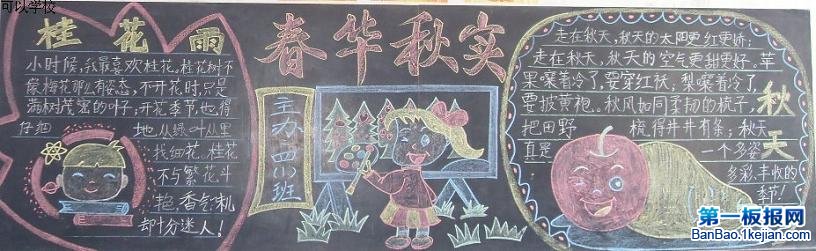 可以学校
桂花雨
小时候,我最喜欢桂花。桂花树不
像梅花那么有姿态,不开花时,只是
满树茂密的叶子;开花季节也得
仔细 地从绿叶丛里
找细花。桂花
不与繁花斗
艳。香气
却十分迷人!
春华秋实
主办:四(1)班
走在秋天,秋天的太阳更红更娇;
走在秋天,秋天的空气更甜更好。苹
果嚷着冷了,要穿红袄;梨嚷着冷了,
要披黄袍。秋风如同柔韧的梳子,
把田野 梳得井井有条;秋天
真是 一个多姿
多彩,丰收的
季节!
秋天
第一板报网
BanBao.1kejian.com